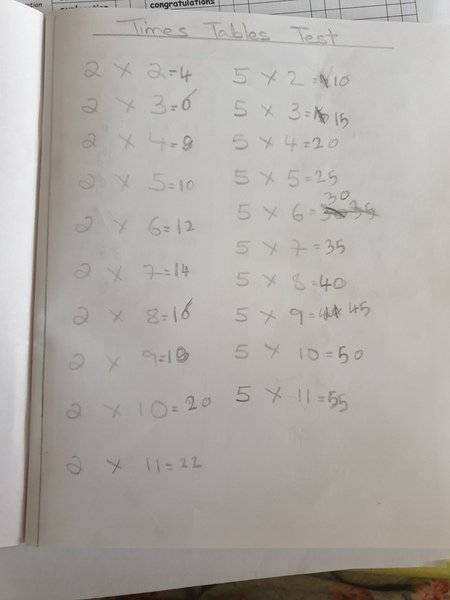 congratulations
Times Tables Test
2 x 2=4
2 x 3=6
2 x 4=8
2 x 5=10
2 x 6=12
2 x 7=14
2 x 8=16
2 x 9=18
2 x 10=20
2 x 11=22
5 x 2=10
5 x 3=15
5 x 4=20
5 x 5=25
5 x 6=30
5 x 7=35
5 x 8=40
5 x 9=45
5 x 10=50
5 x 11=55